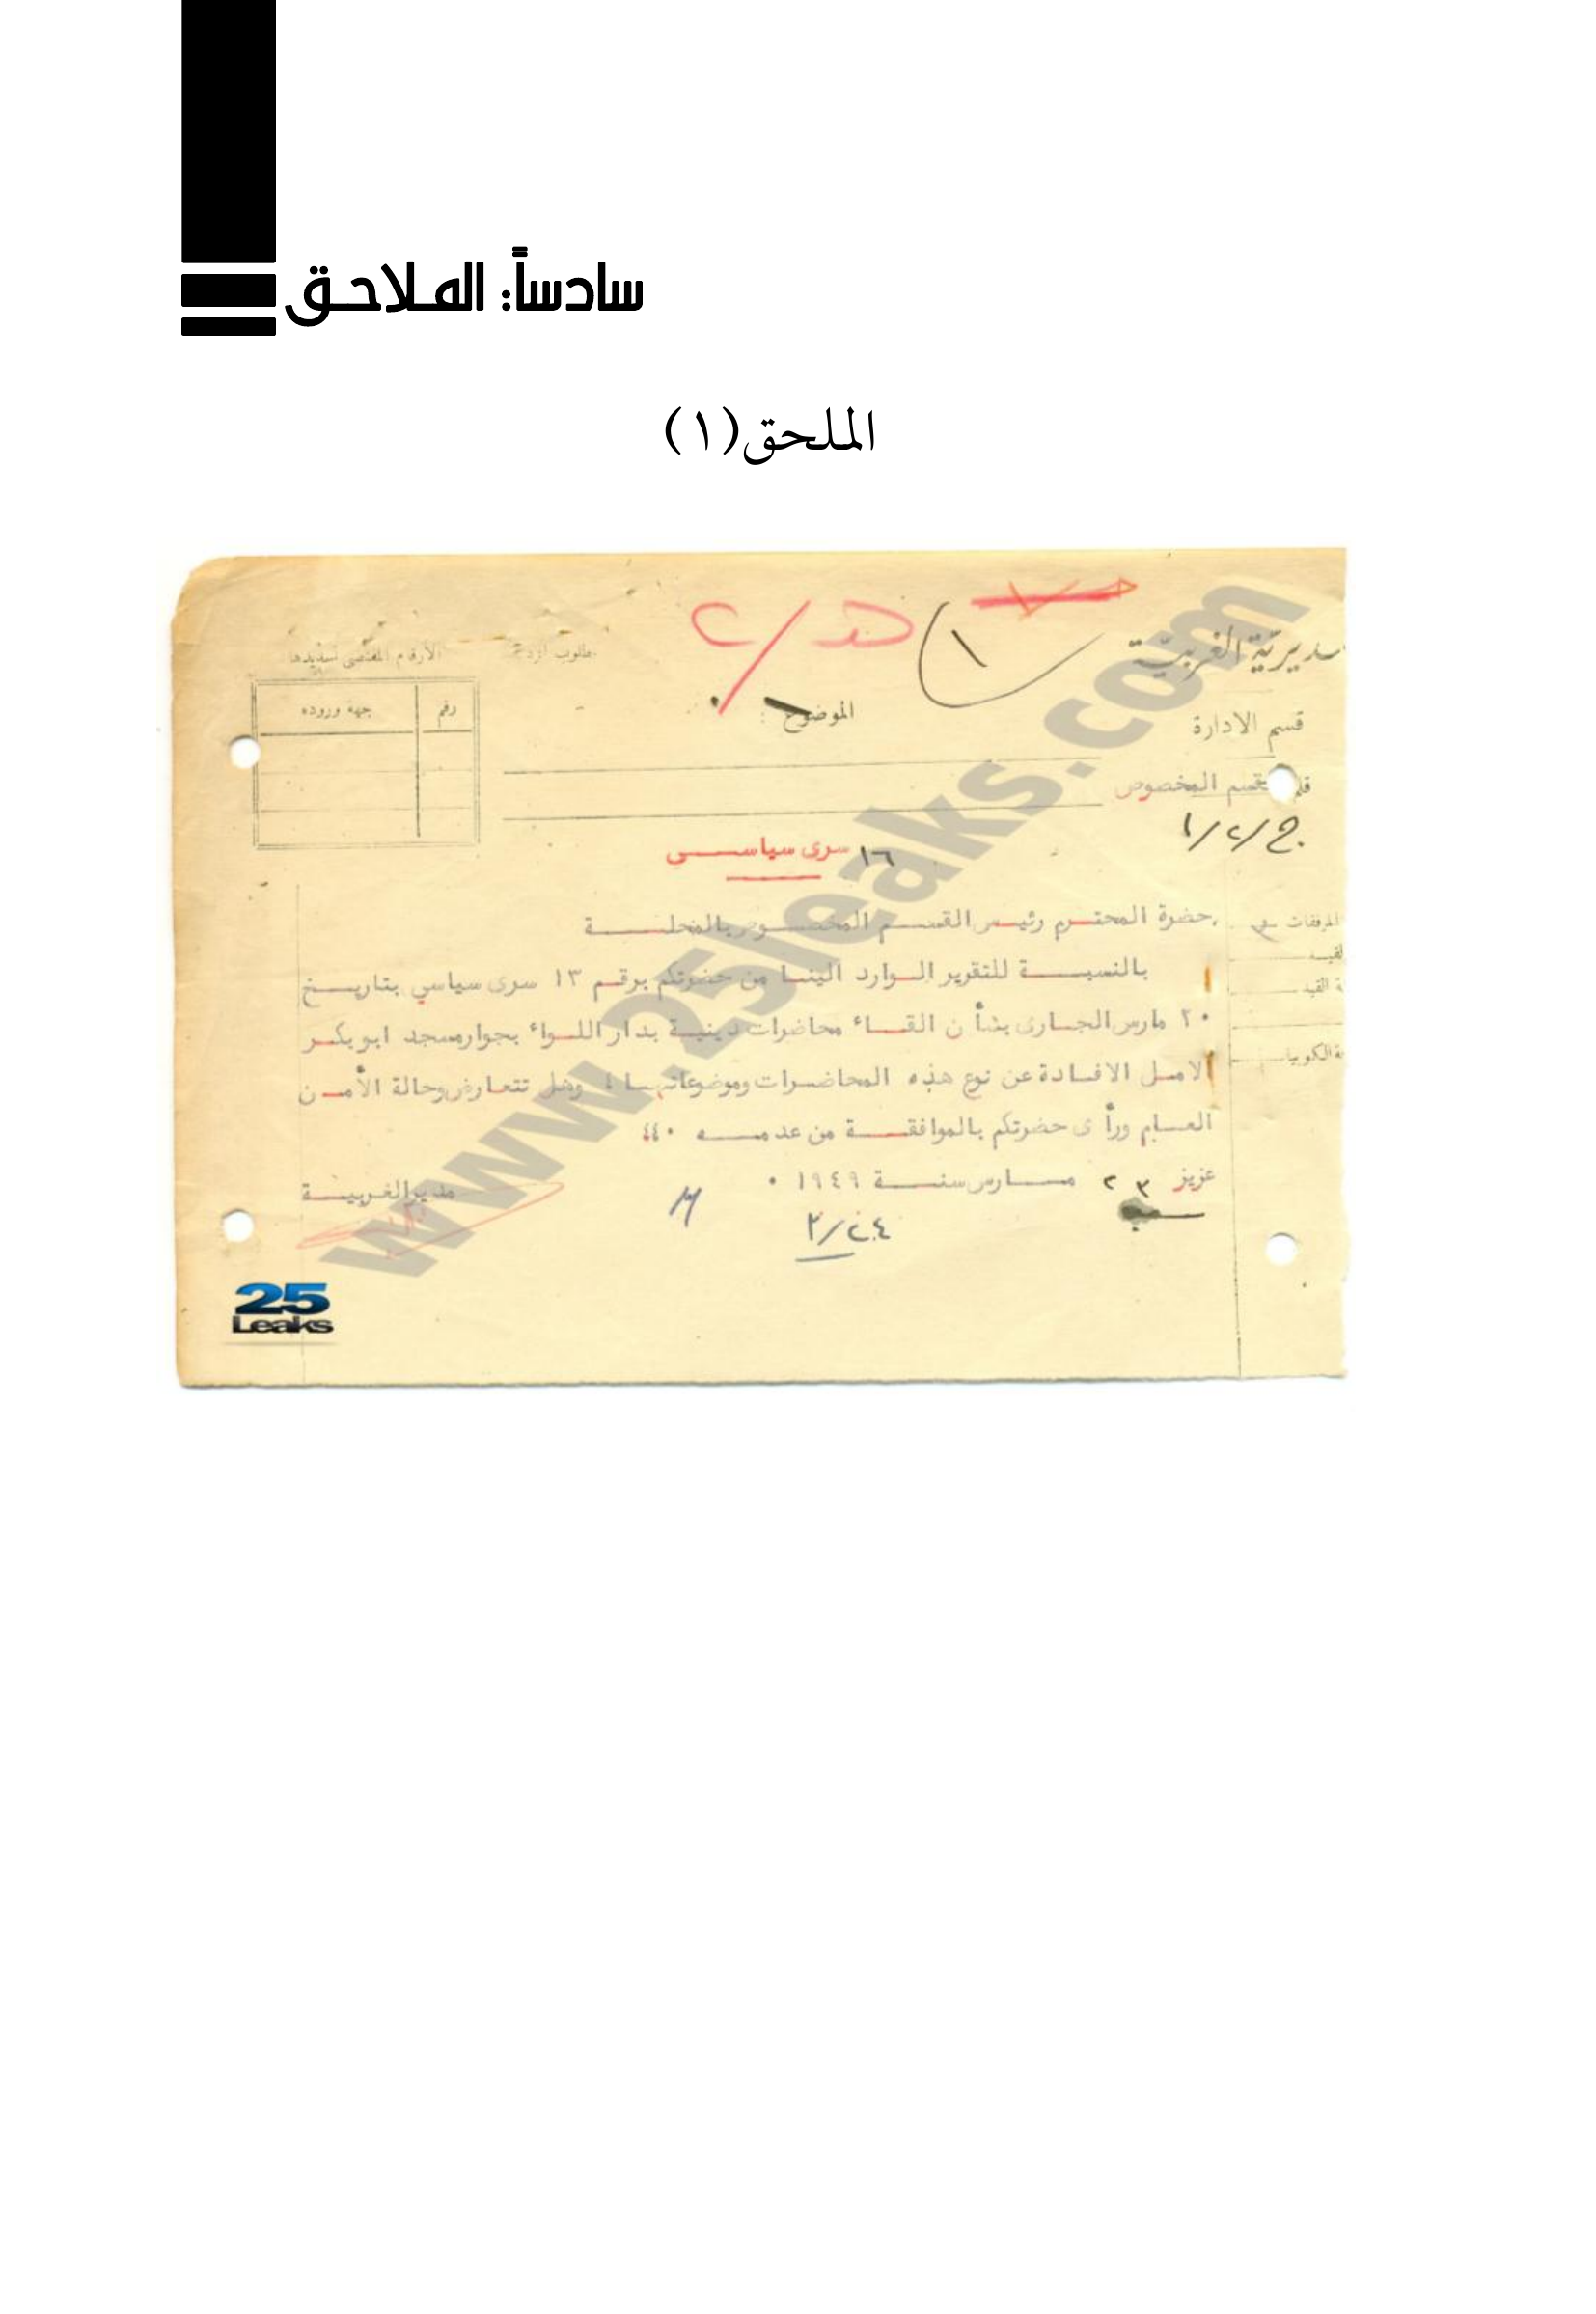 سادساً: الملاحق
الملحق (١)
مديرية الغربية
قسم الادارة
قلم قسم المخصوص
ج/٢/١
الموضوع :
مطلوب الرد
الأرقام المقتضى تسديدها
رقم
جهة وروده
١
١٦ سرى سياسى
المرفقات
حضرة المحترم رئيس القسم المخصوص بالمحلة
بالنسبة للتقرير الوارد الينا من حضرتكم برقم ١٣ سرى سياسي بتاريخ
٢٠ مارس الجارى بشأن القاء محاضرات دينية بدار اللواء بجوار مسجد ابو بكر
الامل الافادة عن نوع هذه المحاضرات وموضوعاتها ؛ وهل تتعارض وحالة الأمن
العام ورأى حضرتكم بالموافقة من عدمه ٠؛؛
عزيز ٢٣ مارس سنة ١٩٤٩ ٠
مدير الغربية
٣/٢٤
25
Leaks
www.25leaks.com